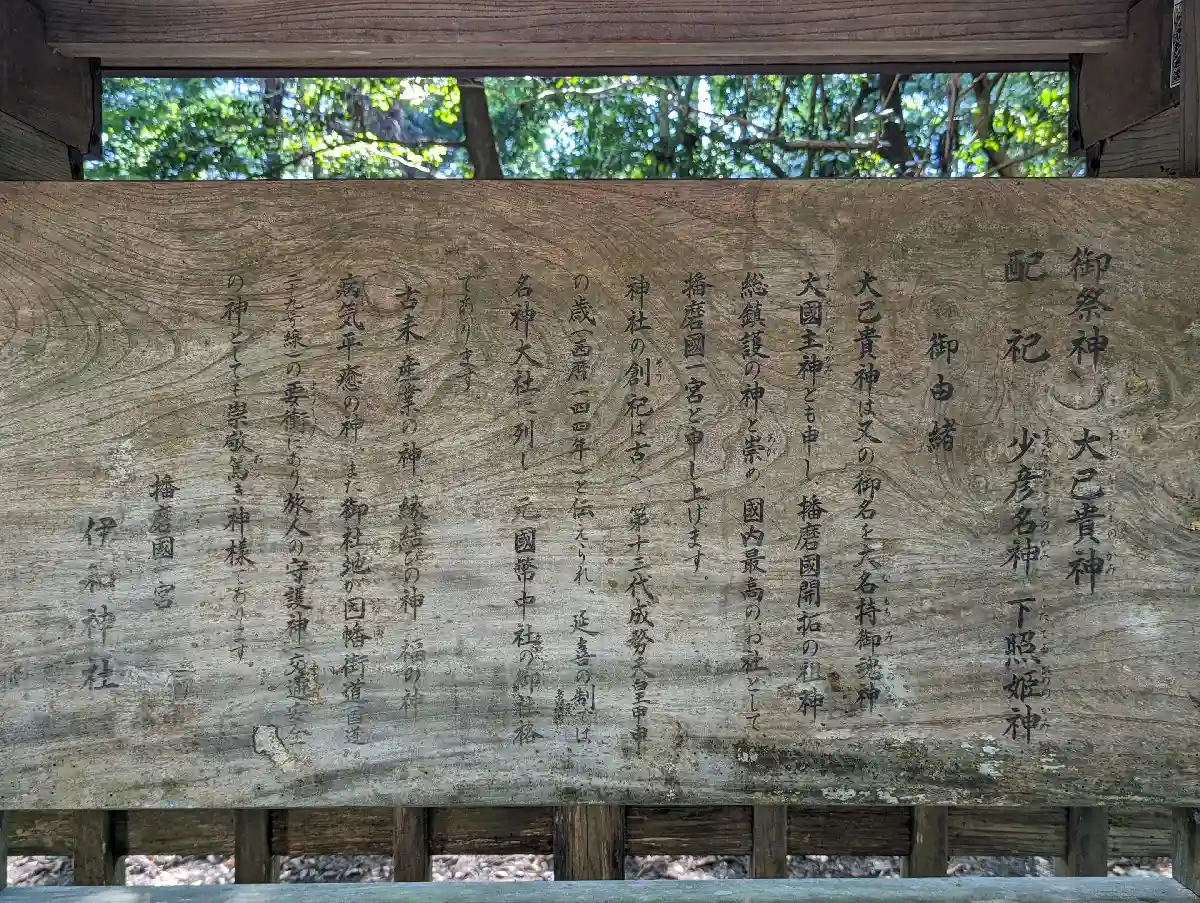 御祭神 大己貴神
配祀 少彦名神 下照姫神
御由緒
大己貴神は又の御名を大名持御魂神、
大國主神とも申し、播磨國開拓の祖神
総鎮護の神と崇め、國内最高のお社として
播磨國一宮と申し上げます。
神社の創祀は古く、第十三代成務天皇甲申
の歳(西暦一四四年)と伝えられ、延喜の制では、
名神大社に列し、元國幣中社の御社格
であります。
古来、産業の神、縁結びの神、福の神
病気平癒の神、また御社地が因幡街道
二十九号線)の要衝にあり旅人の守護神
の神としても崇敬篤き神様であります。
播磨國一宮
伊和神社